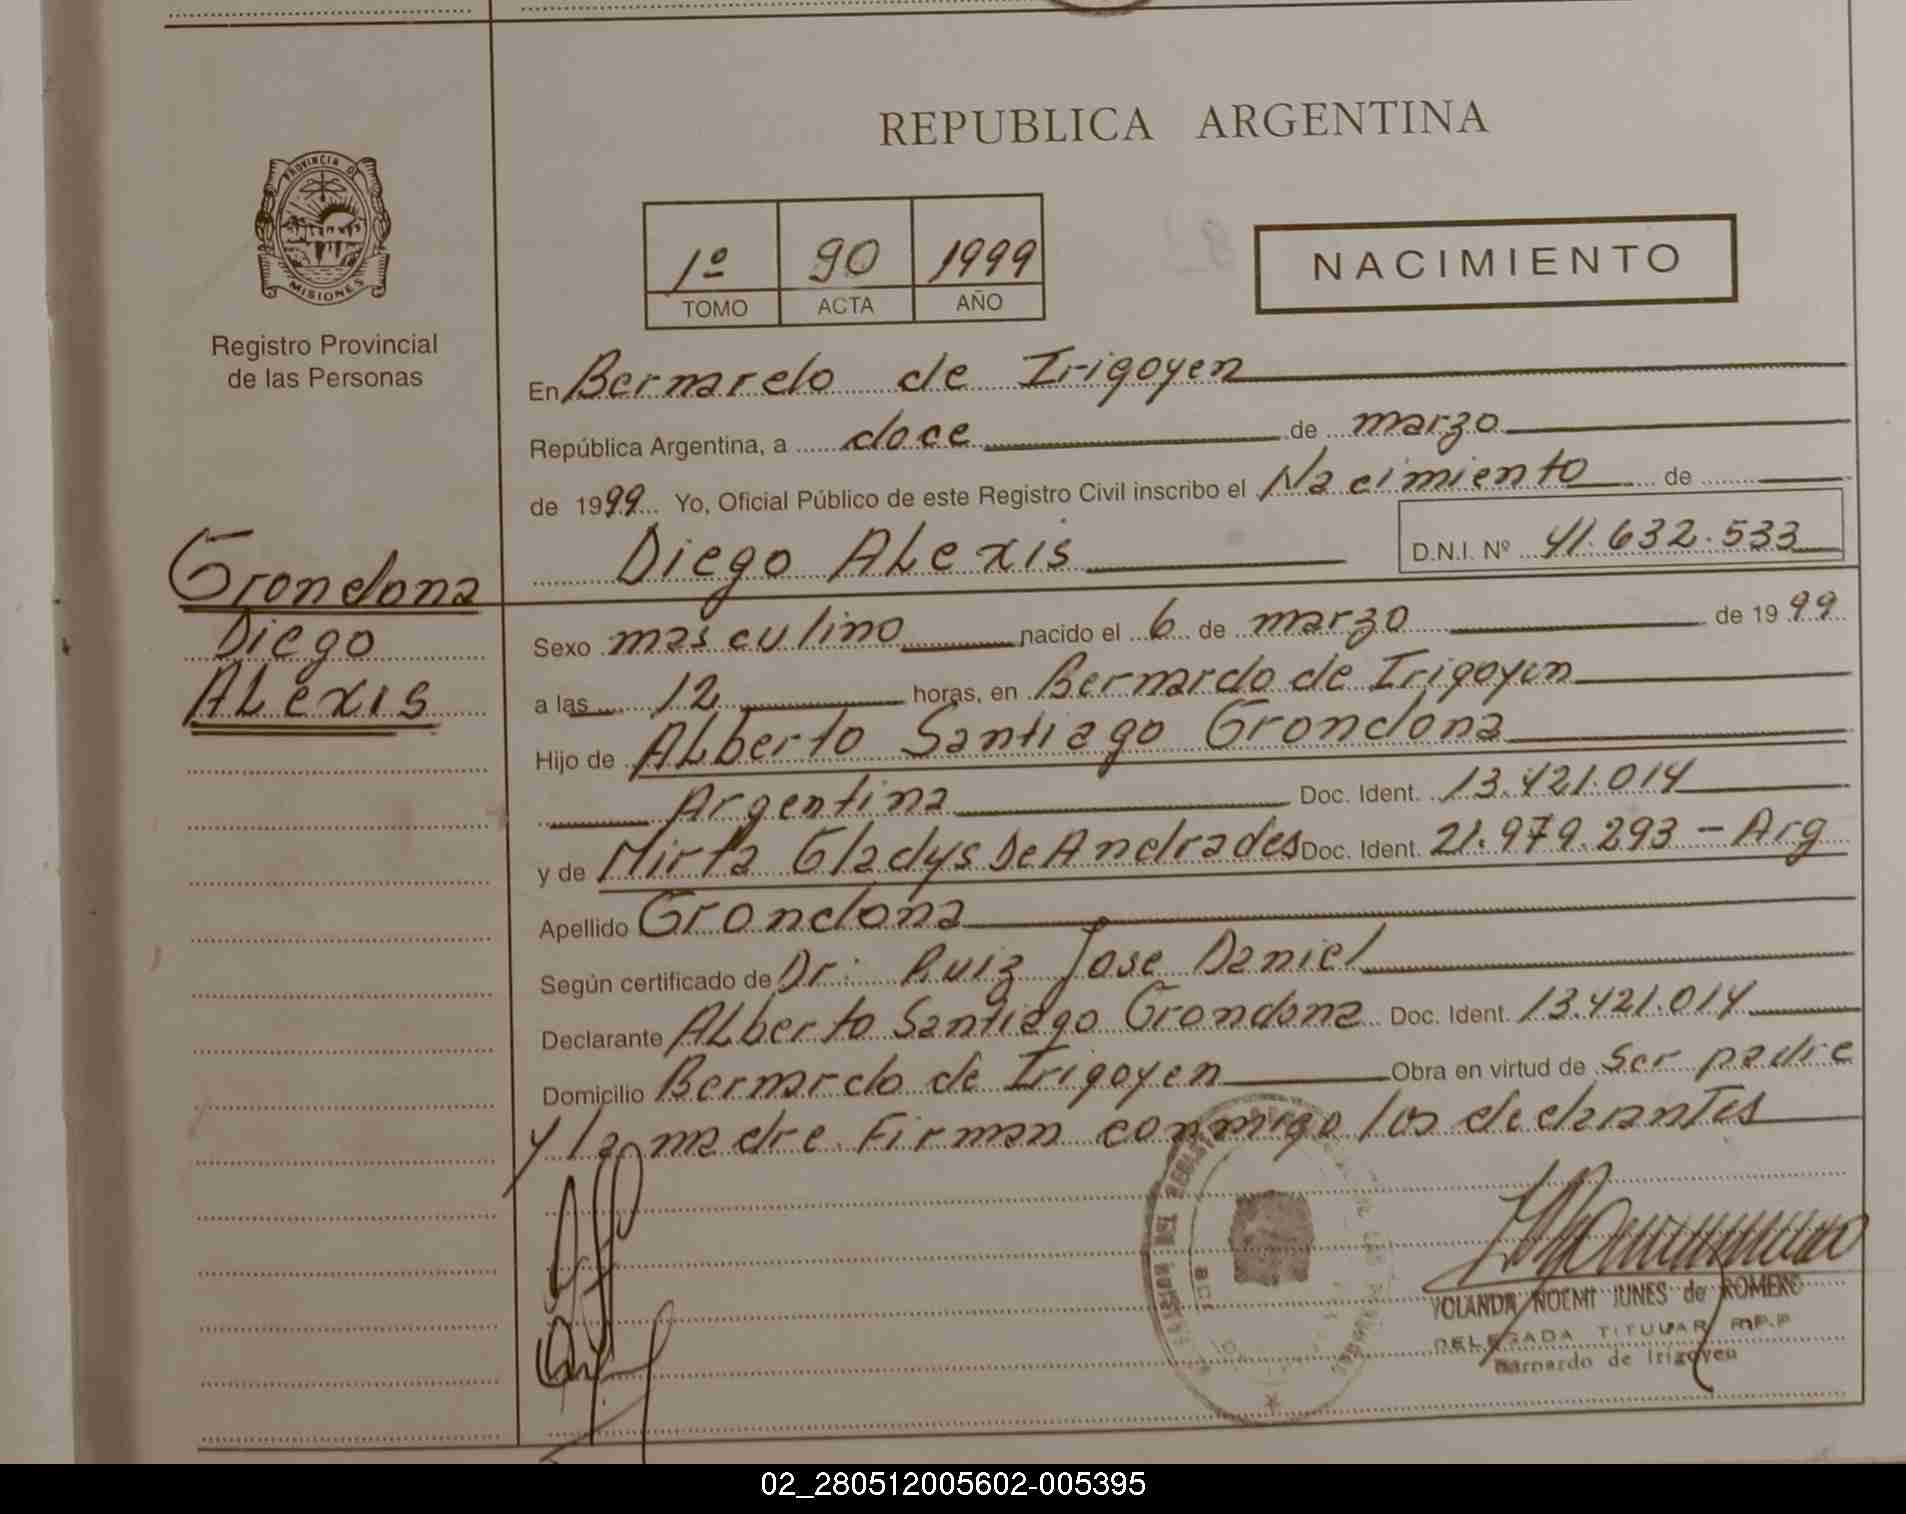 PROVINCIA DE
MISIONES
Registro Provincial
de las Personas
Grondona
Diego
ALexis
REPUBLICA ARGENTINA
1º 90 1999
TOMO ACTA AÑO
NACIMIENTO
En Bernardo de Irigoyen
República Argentina, a doce de marzo
de 1999 Yo, Oficial Público de este Registro Civil inscribo el Nacimiento de
Diego ALexis D.N.I. Nº 41.632.533
Sexo masculino nacido el 6 de marzo de 1999
a las 12 horas, en Bernardo de Irigoyen
Hijo de ALberto Santiago Grondona
Argentina Doc. Ident. 13.421.014
y de Mirta Gladys De Andrades Doc. Ident. 21.979.293 - Arg
Apellido Grondona
Según certificado de Dr: Ruiz Jose Daniel
Declarante ALberto Santiago Grondona Doc. Ident. 13.421.014
Domicilio Bernardo de Irigoyen Obra en virtud de ser padre
y la madre Firman conmigo los declarantes
YOLANDA NOEMI JUNES de ROMERO
DELEGADA TITULAR R.P.P
Bernardo de Irigoyen
02_280512005602-005395